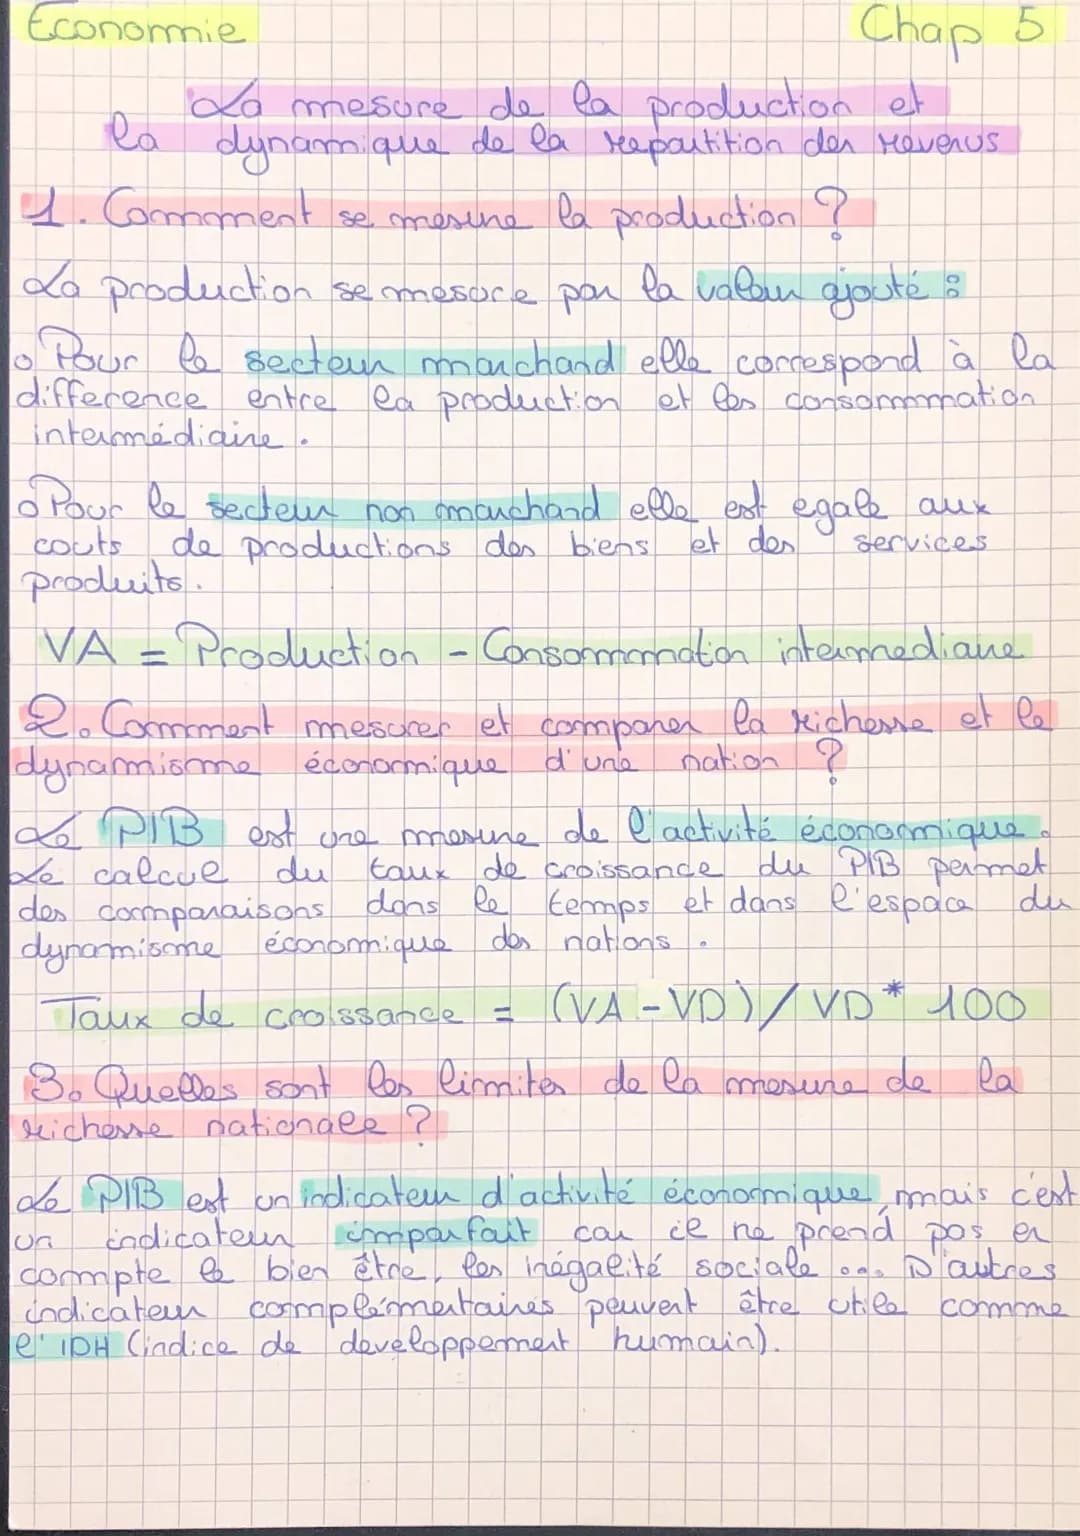 Economie
Chap 5
La mesure de la production et
la dynamique de la repartition des revenus
1. Comment se mesure la production ?
La production se mesure par la valeur ajouté :
o Pour le secteur marchand elle correspond à la
difference entre la production et les consommation
intermédiaire.
o Pour le secteur non marchand elle est egale aux
couts de productions des biens et des services
produits.
VA = Production - Consommation intermediaire
2. Comment mesurer et comparer la richesse et le
dynamisme économique d'une nation ?
Le PIB est une mesure de l'activité économique.
Le calcul du taux de croissance du PIB permet
des comparaisons dans le temps et dans l'espace du
dynamisme économique des nations.
Taux de croissance = (VA - VD) / VD * 100
3. Quelles sont les limites de la mesure de la
richesse nationale ?
Le PIB est un indicateur d'activité économique, mais c'est
un indicateur imparfait car il ne prend pas en
compte le bien être, les inégalité sociale ... D'autres
indicateur complémentaires peuvent être utile comme
l'IDH (indice de developpement humain).